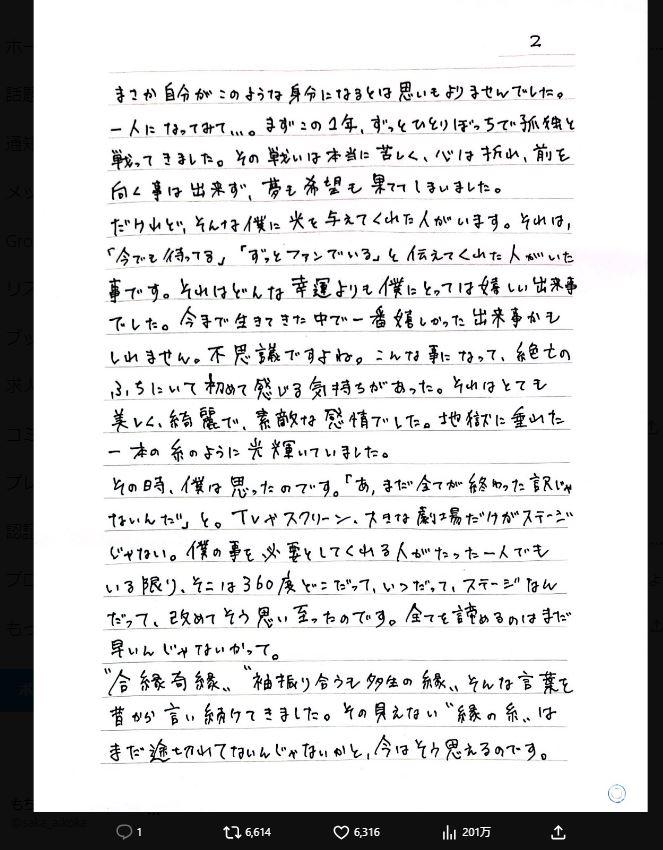 2
まさか自分がこのような身分になるとは思いもよりませんでした。
一人になってみて…。まずこの1年、ずっとひとりぼっちで孤独と
戦ってきました。その戦いは本当に苦しく、心は折れ、前を
向く事は出来ず、夢も希望も果ててしまいました。
だけれど、そんな僕に光を与えてくれた人がいます。それは、
「今でも待ってる」「ずっとファンでいる」と伝えてくれた人がいた
事です。それはどんな幸運よりも僕にとっては嬉しい出来事
でした。今まで生きてきた中で一番嬉しかった出来事かも
しれません。不思議ですよね。こんな事になって、絶亡の
ふちにいて初めて感じる気持ちがあった。それはとても
美しく、綺麗で、素敵な感情でした。地獄に垂れた
一本の糸のように光輝いていました。
その時、僕は思ったのです。「あ、まだ全てが終わった訳じゃ
ないんだ」と。TVやスクリーン、大きな劇場だけがステージ
じゃない。僕の事を必要としてくれる人がたった一人でも
いる限り、そこは360度どこだって、いつだって、ステージなん
だって、改めてそう思い至ったのです。全てを諦めるのはまだ
早いんじゃないかって。
〝合縁奇縁〟〝袖振り合うも多生の縁〟そんな言葉を
昔から言い続けてきました。その見えない〝縁の糸〟は
まだ途切れてないんじゃないかと、今はそう思えるのです。
ホー
話題
通知
メッ
Gro
リス
ブッ
求人
コミ
プレ
認証
プロ
もっ
ポ
もち
@saka_aikoka
1
6,614
6,316
201万